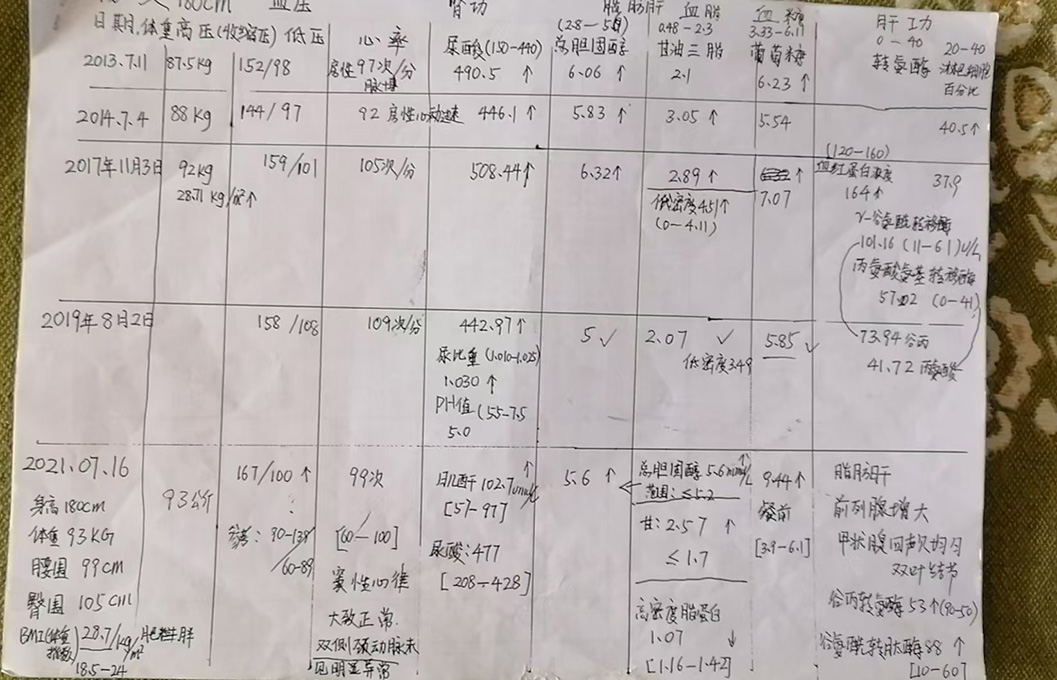 180cm 血压 肾功 脂肪肝 血脂 血糖 肝功
日期,体重 高压(收缩压) 低压 心率 尿酸(150-440) 总胆固醇 0.48-2.3 甘油三脂 3.33-6.11 葡萄糖 0-40 转氨酶 20-40 淋巴细胞百分比
2013.7.11 87.5kg 152/98 房性97次/分 490.5↑ 6.06↑ 2.1 6.23↑
2014.7.4 88kg 144/97 92 房性心动过速 446.1↑ 5.83↑ 3.05↑ 5.54 40.5↑
2017年11月3日 92kg 159/101 105次/分 508.44↑ 6.32↑ 2.89↑ ↑ (120-160)
血红蛋白浓度 37.9
28.71 kg/㎡↑ 7.07 164↑
低密度4.51↑
(0-4.11)
γ-谷氨酰转移酶
101.16 (11-61)U/L
丙氨酸氨基转移酶
57.02 (0-41)
2019年8月2日 158/108 109次/分 442.97↑ 5✓ 2.07✓ 5.85✓ 73.94谷丙
尿比重(1.010-1.025) 低密度3.49 41.72丙氨酸
1.030↑
PH值(5.5-7.5
5.0
2021.07.16 93公斤 167/100↑ 99次 肌酐102.7umol/L↑ 5.6↑ 总胆固醇5.6mmol/L↑ 9.44↑ 脂肪肝
身高180cm [57-97] 范围:≤5.2 餐前 前列腺增大
体重93KG 参考:90-139/60-89 [60-100] 尿酸:477 甘:2.57↑ [3.9-6.1] 甲状腺回声欠均匀
腰围99cm 窦性心律 [208-428] ≤1.7 双叶结节
臀围105cm 大致正常. 高密度脂蛋白 谷丙转氨酶53↑(90-50)
BMI(体重指数)28.7/kg/m² 肥胖 双侧颈动脉未 1.07↓ 谷氨酰转肽酶88↑
18.5-24 见明显异常 [1.16-1.42] [10-60]